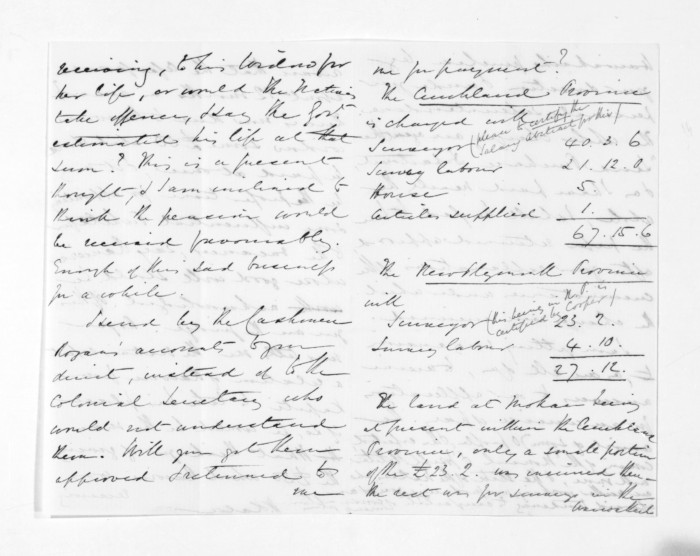 receiving, to his widow for
her life, or would the Natives
take offence, & say the Govt.
estimated his life at that
sum? This is a present
thought, & I am inclined to
think the pension would
be received favourably.
Enough of this sad business
for a while.
I send by the
Rogan's accounts to you
direct, instead of to the
Colonial Secretary who
would not understand
them. Will you get them
approved & returned to
me
me for payment?
The Auckland Province
is charged with
Surveyor (please to certify the
salary abstract for this) 40. 3. 6
Survey labour 21. 12. 0
House 5.
Articles supplied 1.
67. 15. 6
The New Plymouth Province
with
Surveyor (his being in N.P. is
certified by Cooper) 23. 2.
Survey labour 4. 10.
27. 12.
The land at Mokau being
at present within the Auckland
Province, only a small portion
of the £23. 2. was incurred there
the rest was for surveys in the